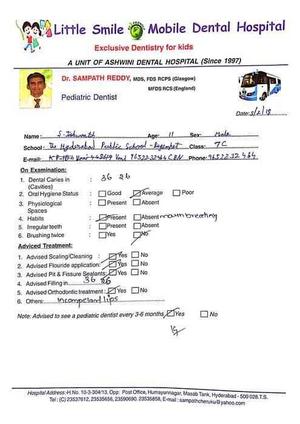 Little Smile Mobile Dental Hospital
Exclusive Dentistry for kids
A UNIT OF ASHWINI DENTAL HOSPITAL (Since 1997)
Dr. SAMPATH REDDY, MDS, FDS RCPS (Glasgow)
MFDS RCS (England)
Pediatric Dentist
Date:
Name: Age: 11 Sex: Male
School: The Hyderabad Public School - Class: 7C
E-mail: Phone:
On Examination:
1. Dental Caries in : 36 26
(Cavities)
2. Oral Hygiene Status : Good Average Poor
3. Physiological : Present Absent
Spaces
4. Habits : Present Absent mouth breathing
5. Irregular teeth : Present Absent
6. Brushing twice : Yes No
Adviced Treatment:
1. Advised Scaling/Cleaning : Yes No
2. Advised Flouride application: Yes No
3. Advised Pit & Fissure Sealants: Yes No
4. Advised Filling in 36 26
5. Advised Orthodontic treatment : Yes No
6. Others: Incompetent lips
Note: Advised to see a pediatric dentist every 3-6 months, Yes No
Hospital Address: H.No. 10-3-304/13, Opp: Post Office, Humayunnagar, Masab Tank, Hyderabad - 500 028.T.S.
Tel: (C) 23537612, 23535656, 23590690, 23535858, E-mail: sampathcheruku@yahoo.com